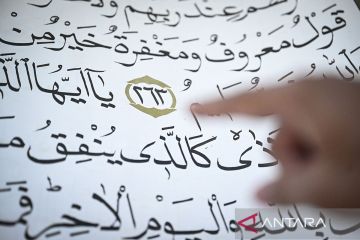 عِنْدَ رَبِّهِمْ
قَوْلٌ مَعْرُوفٌ وَمَغْفِرَةٌ خَيْرٌ مِنْ
٢٦٣ يَا اَيُّهَا
كَالَّذٖى يُنْفِقُ
وَالْيَوْمِ الْاٰخِرِ
ANTARA